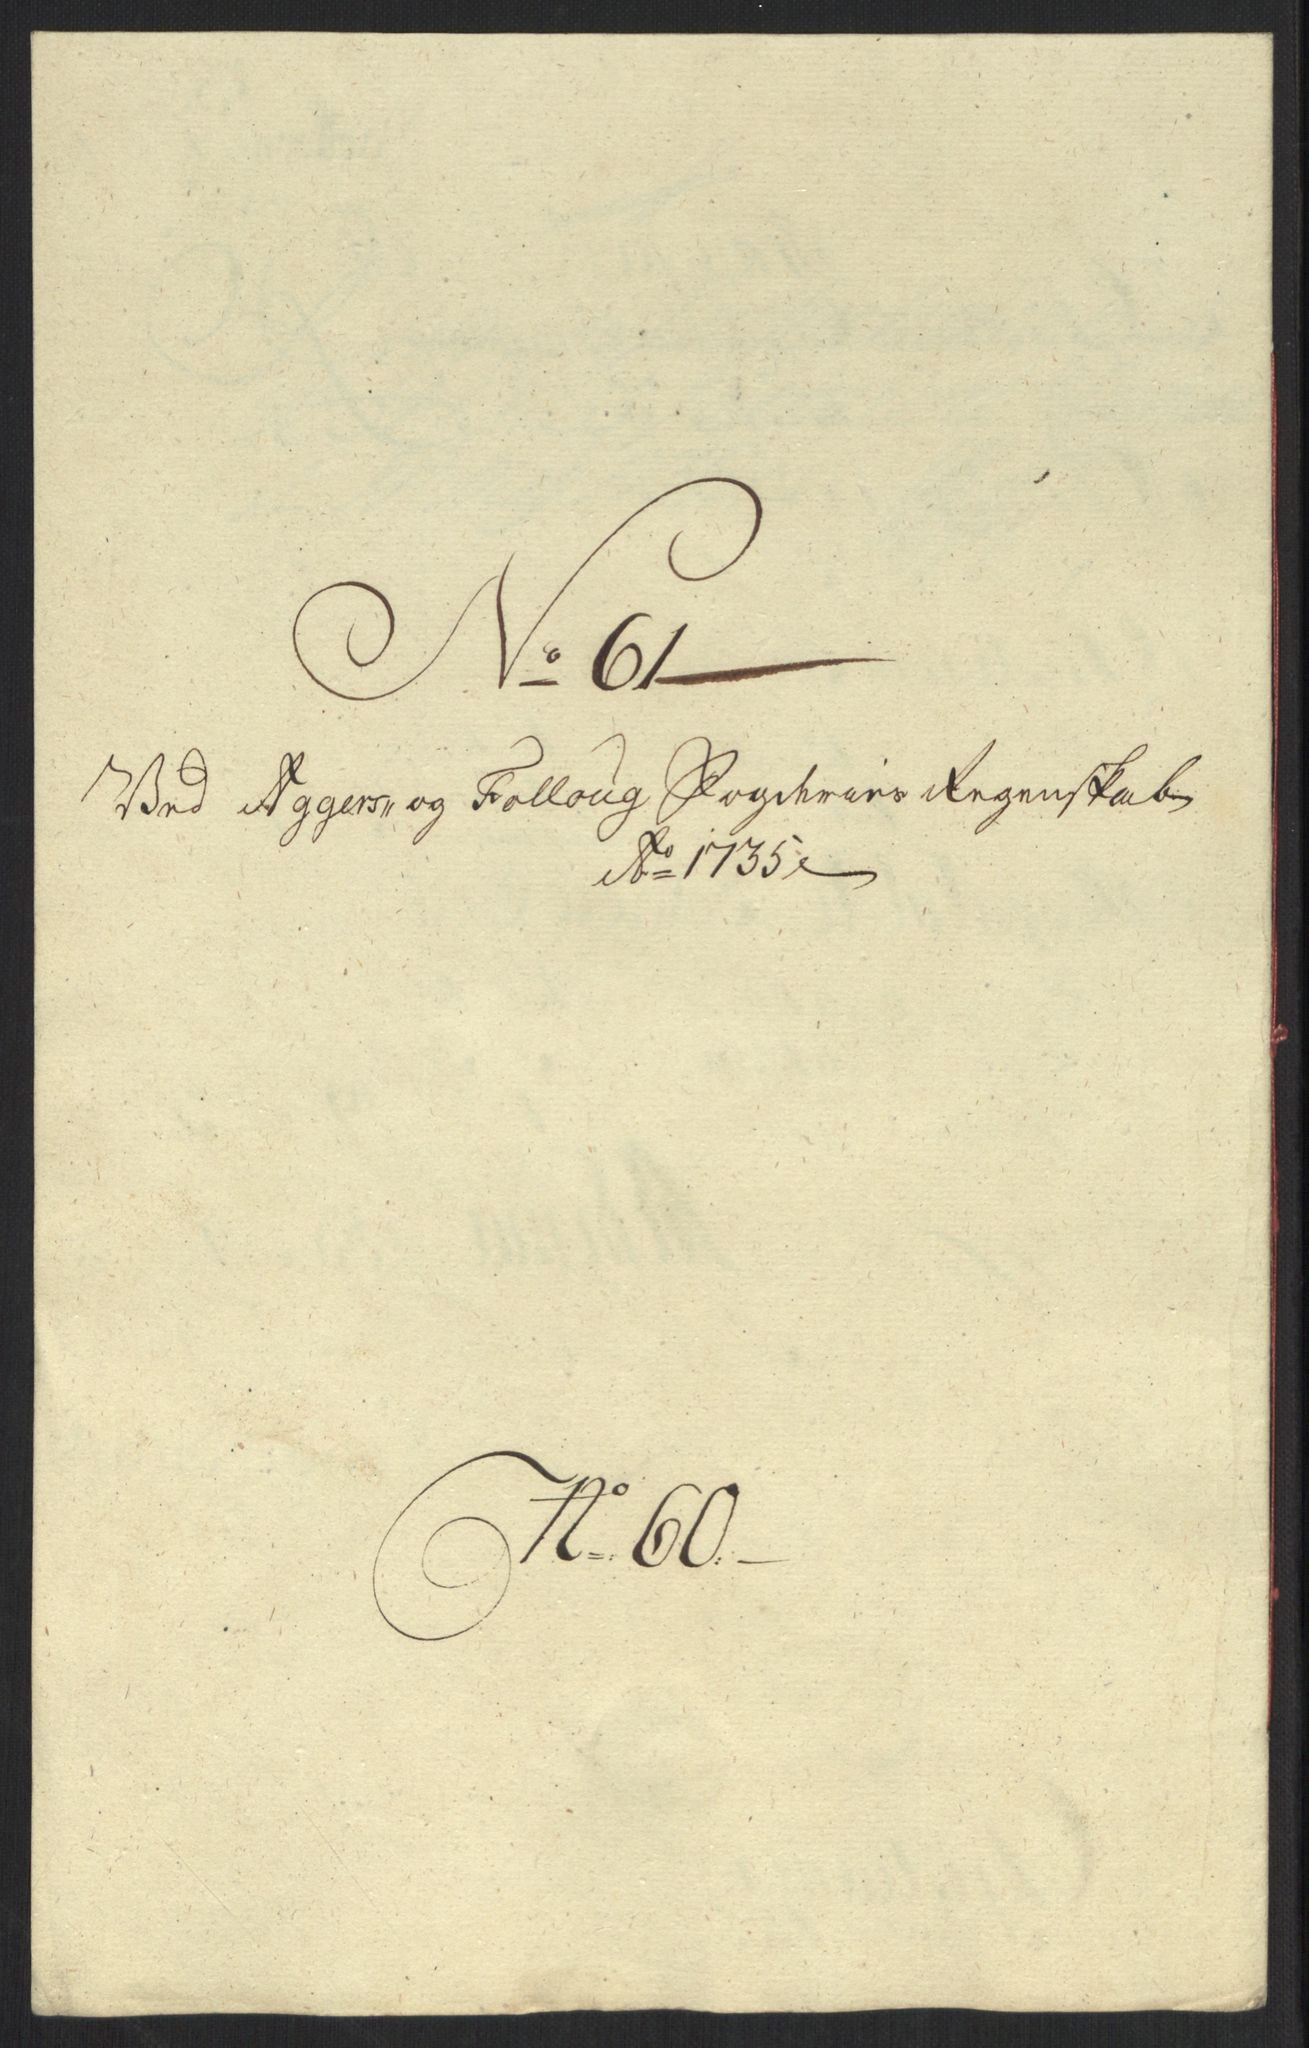 No 61
Ved Aggers- og Folloug Fogderies Regenskab
Ao 1735
No. 60.